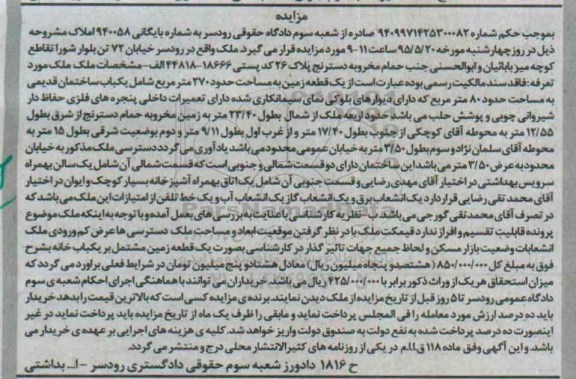 مزایده
بموجب حکم شماره ۹۴۰۹۹۷۱۴۲۵۳۰۰۰۸۲ صادره از شعبه سوم دادگاه حقوقی رودسر به شماره بایگانی ۹۴۰۰۵۸ املاک مشروحه
ذیل در روز چهارشنبه مورخه ۹۵/۵/۲۰ ساعت ۱۱-۹ مورد مزایده قرار می گیرد. ملک واقع در رودسر خیابان ۷۲ تن بلوار شورا تقاطع
کوچه میر بابائیان و ابوالحسنی جنب حمام مخروبه دسترنج پلاک ۲۶ کد پستی ۱۸۶۶۶-۴۴۸۱۸ الف-مشخصات ملک ملک مورد
تعرفه: فاقد سند مالکیت رسمی بوده عبارت است از یک قطعه زمین به مساحت حدود ۳۷۰ متر مربع شامل یکباب ساختمان قدیمی
به مساحت حدود ۸۰ متر مربع که دارای دیوارهای بلوکی نمای سیمانکاری شده دارای تعمیرات داخلی پنجره های فلزی حفاظ دار
شیروانی چوبی و پوشش حلب می باشد حدود اربعه ملک از شمال بطول ۲۳/۴۰ متر به زمین مخروبه حمام دسترنج از شرق بطول
۱۲/۵۵ متر به محوطه آقای کوچکی از جنوب بطول ۱۷/۴۰ متر و از غرب اول بطول ۹/۱۱ متر و دوم بوضعیت شرقی بطول ۱۵ متر به
محوطه آقای سلمان نژاد و سوم بطول ۳/۵۰ متر به خیابان عمومی محدود می باشد یادآوری می گردد دسترسی ملک مذکور به خیابان
محدود به عرض ۳/۵۰ متر می باشد این ساختمان دارای دو قسمت شمالی و جنوبی است که قسمت شمالی آن شامل یک سالن بهمراه
سرویس بهداشتی در اختیار آقای مهدی رضایی و قسمت جنوبی آن شامل یک اتاق بهمراه آشپزخانه بسیار کوچک و ایوان در اختیار
آقای محمد تقی رضایی قرار دارد یک انشعاب برق و یک انشعاب گاز یک انشعاب آب و یک خط تلفن از امتیازات این ملک می باشد که
در تصرف آقای محمد تقی گورجی می باشد ب-نظریه کارشناسی با عنایت به بررسی های بعمل آمده و با توجه به اینکه ملک موضوع
پرونده قابلیت تقسیم و افراز ندارد قیمت ملک با در نظر گرفتن موقعیت ابعاد و مساحت ملک دسترسی ها عرض کم ورودی ملک
انشعابات وضعیت بازار مسکن و لحاظ جمیع جهات تاثیر گذار در کارشناسی بصورت یک قطعه زمین مشتمل بر یکباب خانه بشرح
فوق به مبلغ کل ۸۵۰/۰۰۰/۰۰۰ (هشتصد و پنجاه میلیون ریال) معادل هشتاد و پنج میلیون تومان در شرایط فعلی برآورد می گردد که
میزان استحقاق هر یک از وراث ذکور برابر با ۴۲۵/۰۰۰/۰۰۰ ریال می باشد. خریداران می توانند با هماهنگی اجرای احکام شعبه ی سوم
دادگاه عمومی رودسر تا ۵ روز قبل از تاریخ مزایده از ملک دیدن نمایند. برنده ی مزایده کسی است که بالاترین قیمت را بدهد خریدار
باید ده درصد ارزش مورد معامله را فی المجلس پرداخت نماید و مابقی را ظرف یک ماه از تاریخ مزایده باید پرداخت نماید در غیر
اینصورت ده درصد پرداخت شده به نفع دولت به صندوق دولت واریز خواهد شد. کلیه ی هزینه های اجرایی بر عهده ی خریدار می
باشد. و این آگهی وفق ماده ۱۱۸ ق.ا.م در یکی از روزنامه های کثیرالانتشار محلی درج و منتشر می گردد.
ح ۱۸۱۶ دادورز شعبه سوم حقوقی دادگستری رودسر -ا_ بداشتی